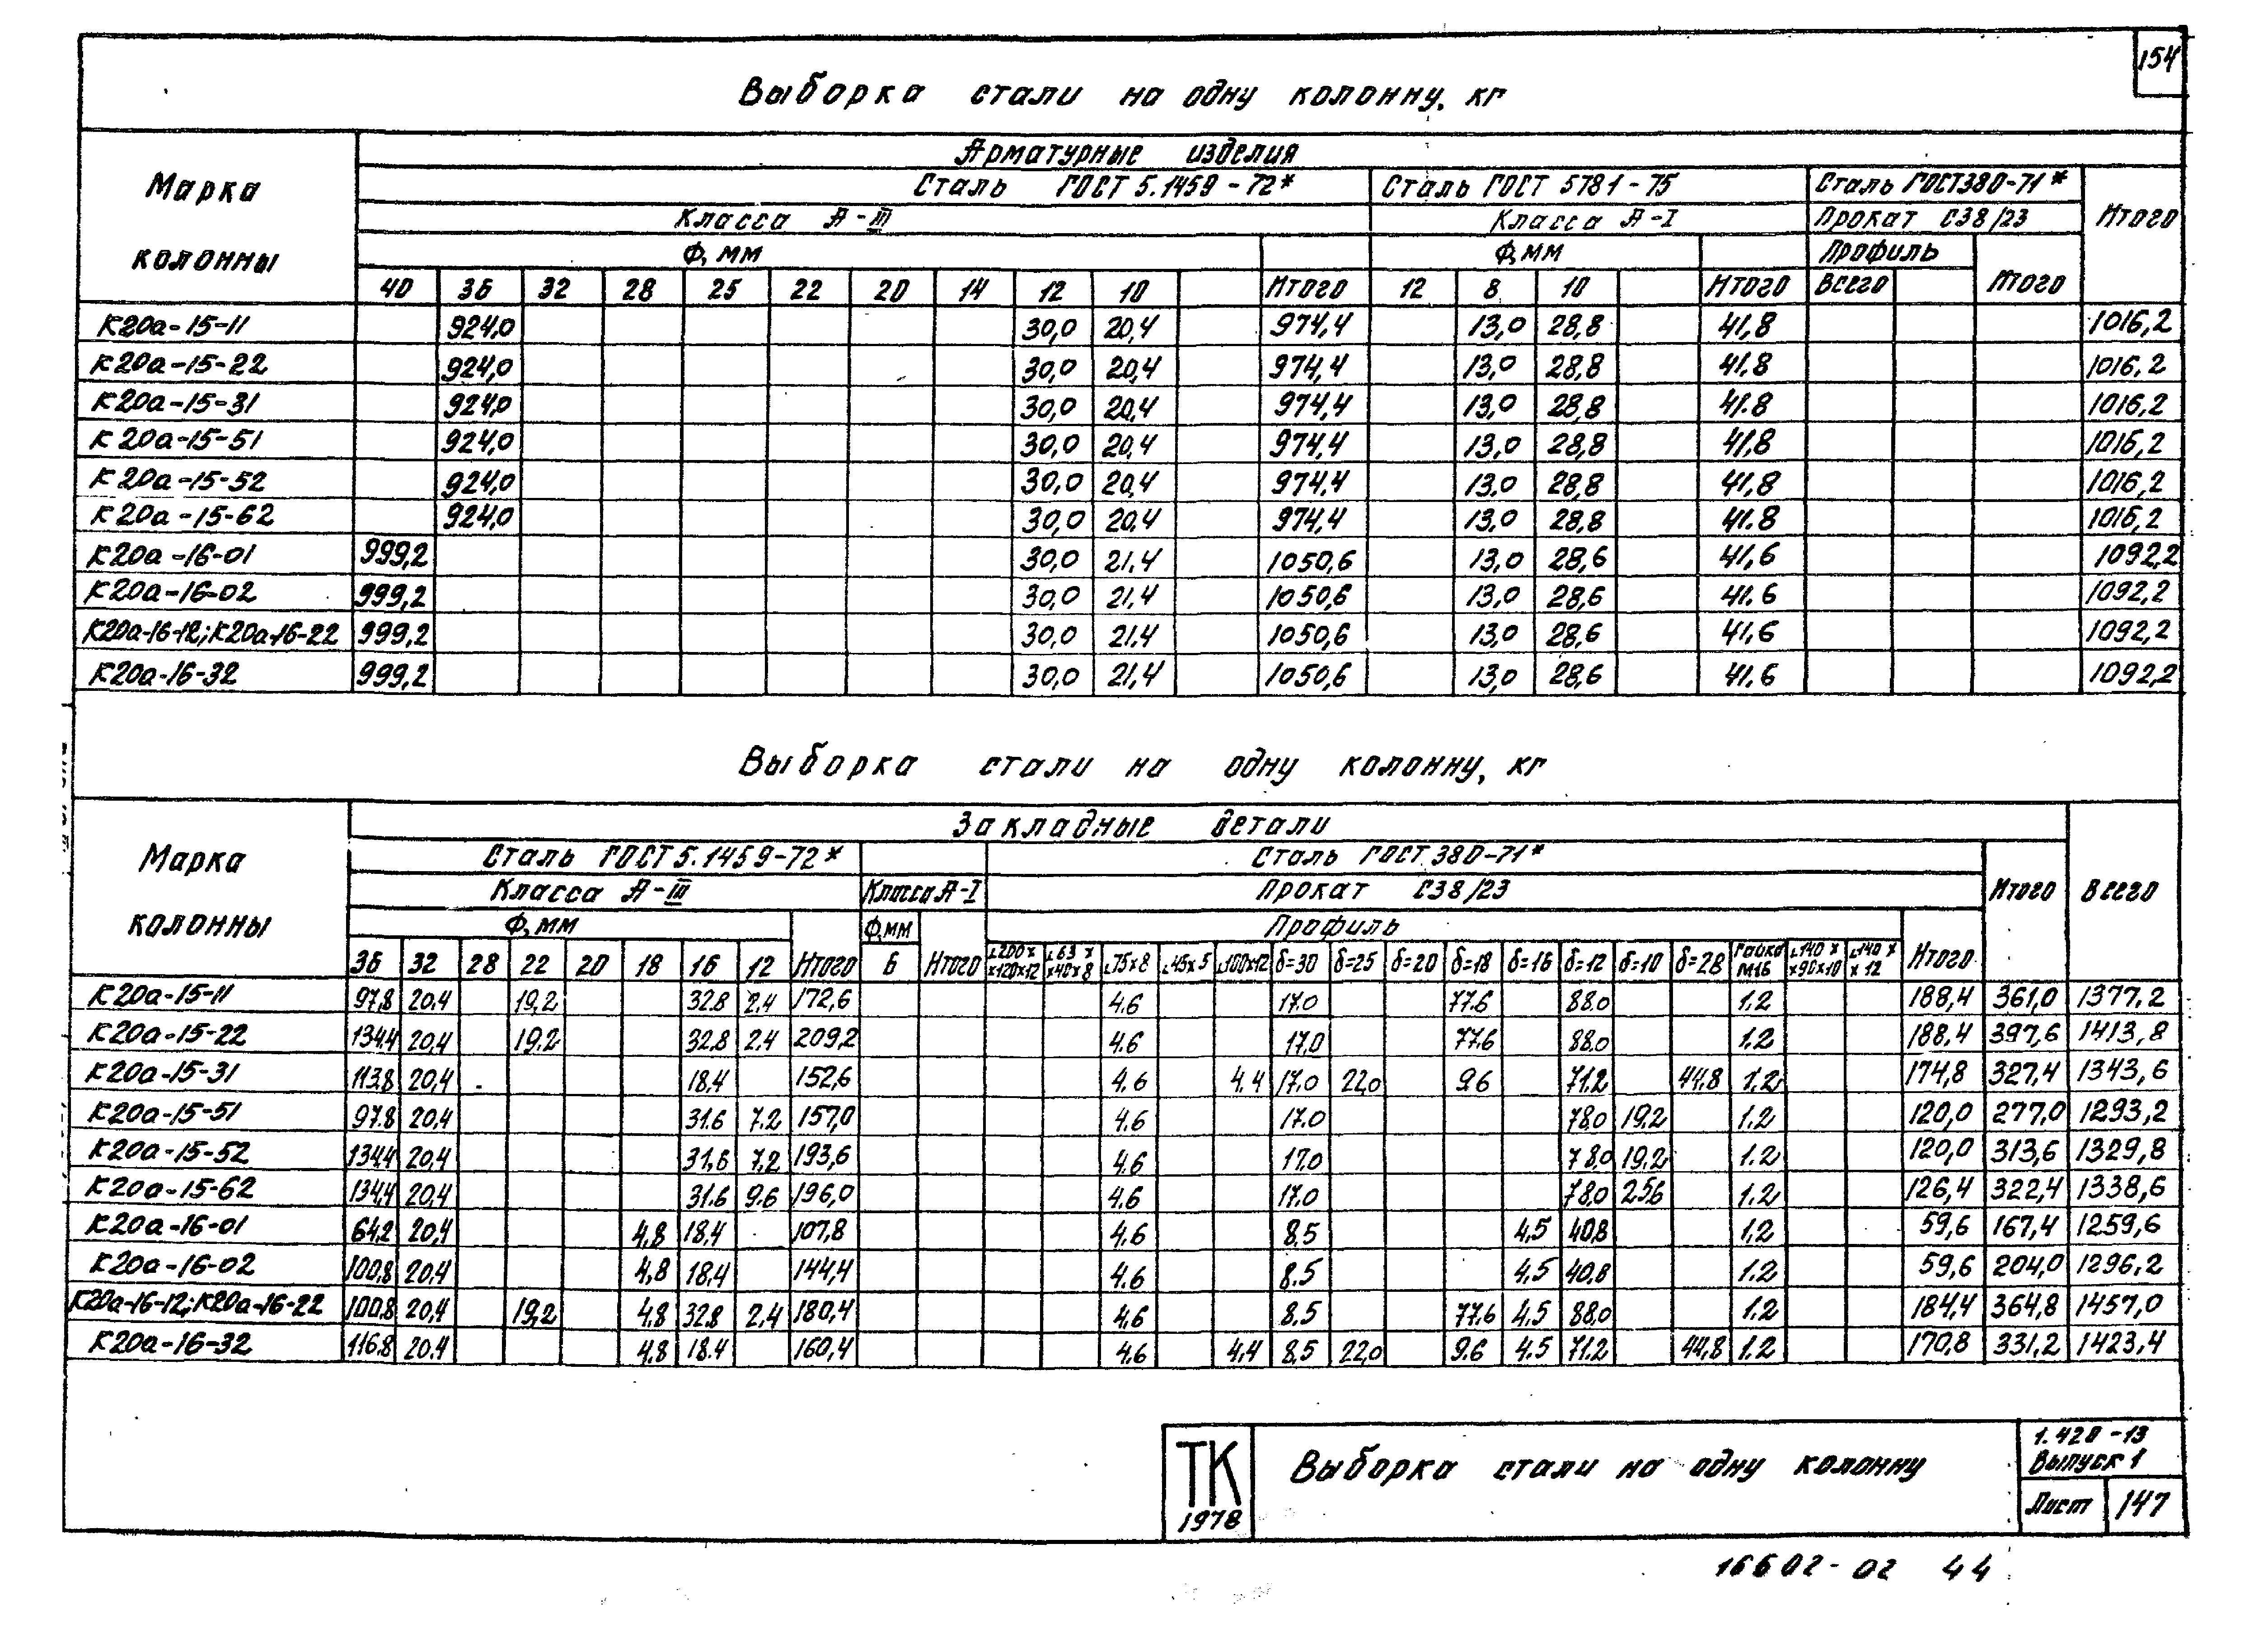 154
Выборка стали на одну колонну, кг
Марка колонны
Арматурные изделия
Сталь ГОСТ 5.1459-72* Сталь ГОСТ 5781-75 Сталь ГОСТ380-71* Итого
Класса А-III Класса А-I Прокат С38/23
Ф, мм Ф,мм Профиль
40 36 32 28 25 22 20 14 12 10 Итого 12 8 10 Итого Всего Итого
К20а-15-11 924,0 30,0 20,4 974,4 13,0 28,8 41,8 1016,2
К20а-15-22 924,0 30,0 20,4 974,4 13,0 28,8 41,8 1016,2
К20а-15-31 924,0 30,0 20,4 974,4 13,0 28,8 41.8 1016,2
К20а-15-51 924,0 30,0 20,4 974,4 13,0 28,8 41,8 1016,2
К20а-15-52 924,0 30,0 20,4 974,4 13,0 28,8 41,8 1016,2
К20а-15-62 924,0 30,0 20,4 974,4 13,0 28,8 41.8 1016,2
К20а-16-01 999,2 30,0 21,4 1050,6 13,0 28,6 41,6 1092,2
К20а-16-02 999,2 30,0 21,4 1050,6 13,0 28,6 41.6 1092,2
К20а-16-12;К20а-16-22 999,2 30,0 21,4 1050,6 13,0 28,6 41,6 1092,2
К20а-16-32 999,2 30,0 21,4 1050,6 13,0 28,6 41.6 1092,2
Выборка стали на одну колонну, кг
Марка колонны
Закладные детали
Сталь ГОСТ 5.1459-72* Сталь ГОСТ 380-71* Итого Всего
Класса А-III Класса А-I Прокат С38/23
Ф, мм Ф,мм Профиль
36 32 28 22 20 18 16 12 Итого 6 Итого ∟200××120×12 ∟63××40×8 ∟75×8 ∟45×5 ∟100×12 δ=30 δ=25 δ=20 δ=18 δ=16 δ=12 δ=10 δ=28 Гайка М16 ∟140××90×10 ∟140×12 Итого
К20а-15-11 97,8 20.4 19,2 32.8 2.4 172,6 4.6 17.0 77.6 88.0 1.2 188,4 361,0 1377,2
К20а-15-22 134.4 20,4 19.2 32.8 2.4 209,2 4.6 17.0 77.6 88.0 1.2 188,4 397,6 1413,8
К20а-15-31 113.8 20,4 18.4 152,6 4.6 4.4 17.0 22,0 9.6 71.2 44,8 1.2 174,8 327,4 1343,6
К20а-15-51 97.8 20,4 31.6 7.2 157,0 4.6 17.0 78,0 19.2 1.2 120,0 277,0 1293,2
К20а-15-52 134.4 20,4 31,6 7.2 193,6 4.6 17.0 78.0 19.2 1.2 120,0 313,6 1329,8
К20а-15-62 134,4 20,4 31.6 9.6 196,0 4.6 17.0 78,0 25.6 1.2 126,4 322,4 1338,6
К20а-16-01 64.2 20,4 4,8 18,4 107,8 4.6 8.5 4,5 40,8 1.2 59,6 167,4 1259,6
К20а-16-02 100,8 20,4 4,8 18,4 144,4 4.6 8.5 4,5 40,8 1.2 59,6 204,0 1296,2
К20а-16-12;К20а-16-22 100,8 20,4 19,2 4,8 32.8 2.4 180,4 4,6 8.5 77.6 4.5 88,0 1.2 184,4 364,8 1457,0
К20а-16-32 116.8 20.4 4.8 18.4 160,4 4.6 4,4 8,5 22,0 9.6 4.5 71.2 44,8 1.2 170,8 331,2 1423,4
ТК
1978
Выборка стали на одну колонну
1.420-13
Выпуск 1
Лист 147
16602-02 44